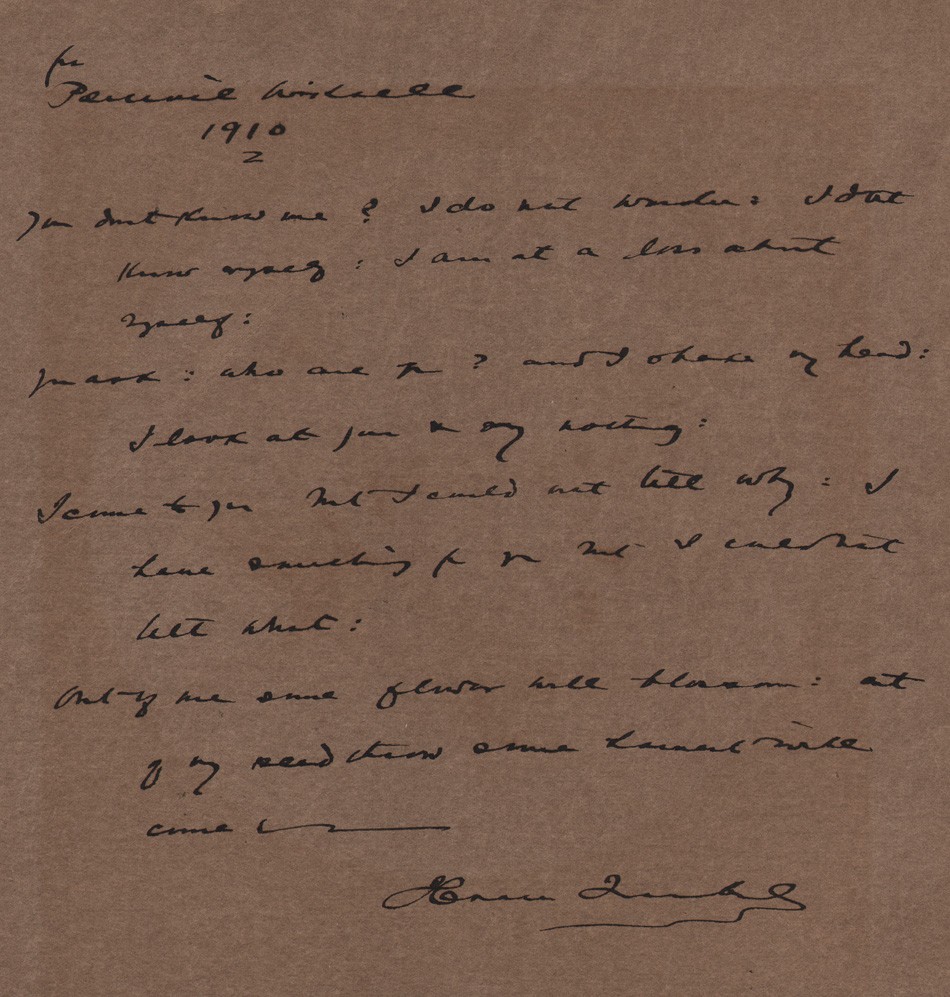 for
Percival Wiksell
1910
2
You dont know me? I do not wonder: I dont
know myself: I am at a loss about
myself:
You ask: who are you? and I shake my head:
I look at you & say nothing:
I come to you but I could not tell why: I
have something for you but I could not
tell what:
Out of me some flower will blossom: out
of my seed throw some harvest will
come
Horace Traubel